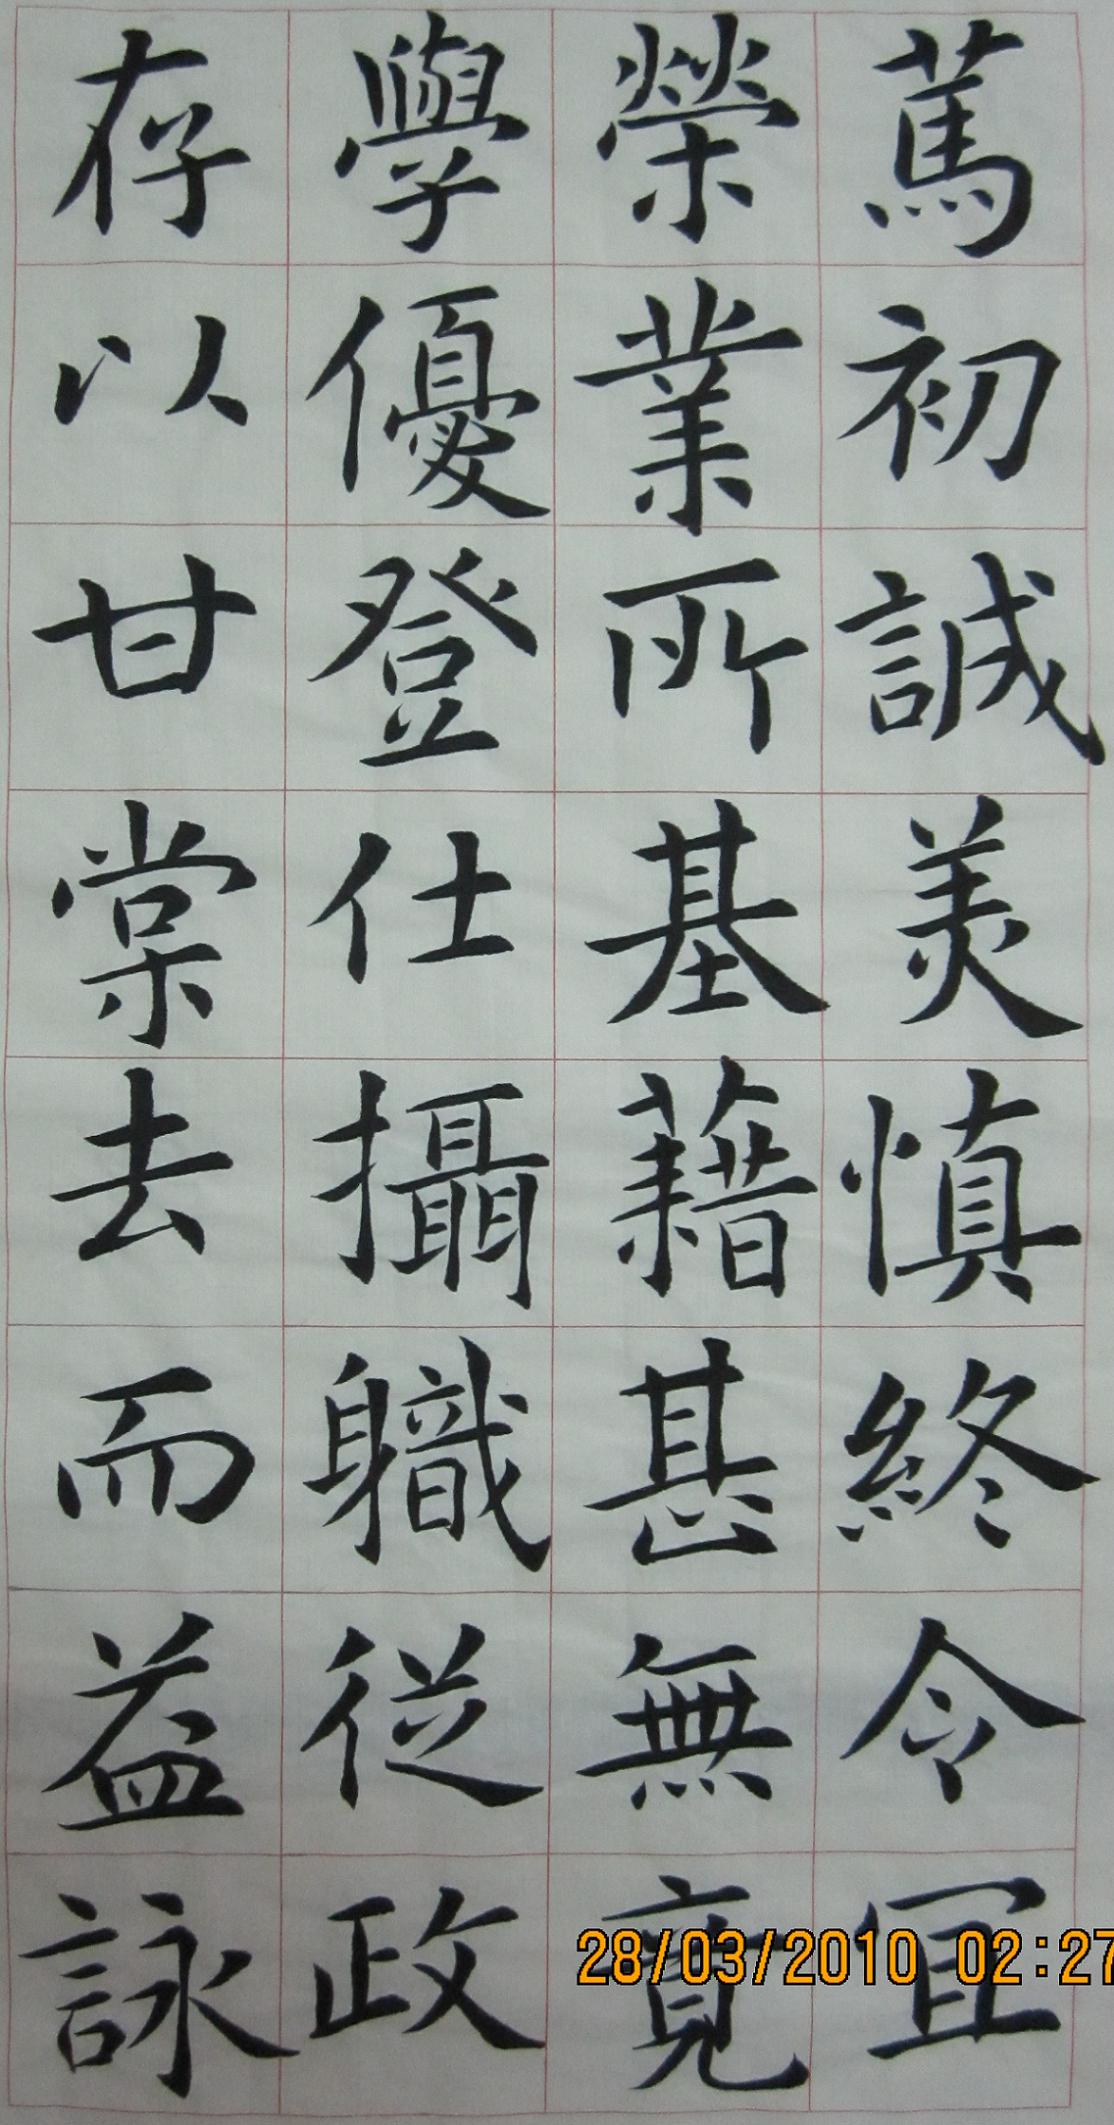 篤初誠美慎終令宜
榮業所基藉甚無竟
學優登仕攝職從政
存以甘棠去而益詠
28/03/2010 02:27